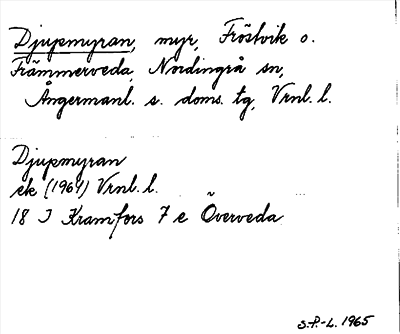 Djupmyran, myr, Fröstvik o.
Främmerveda, Nordingrå sn,
Ångermanl. s. doms. tg, Vrnl. l.
Djupmyran
ek (1964) Vrnl. l.
18 I Kramfors 7 e Överveda
S.P.-L. 1965